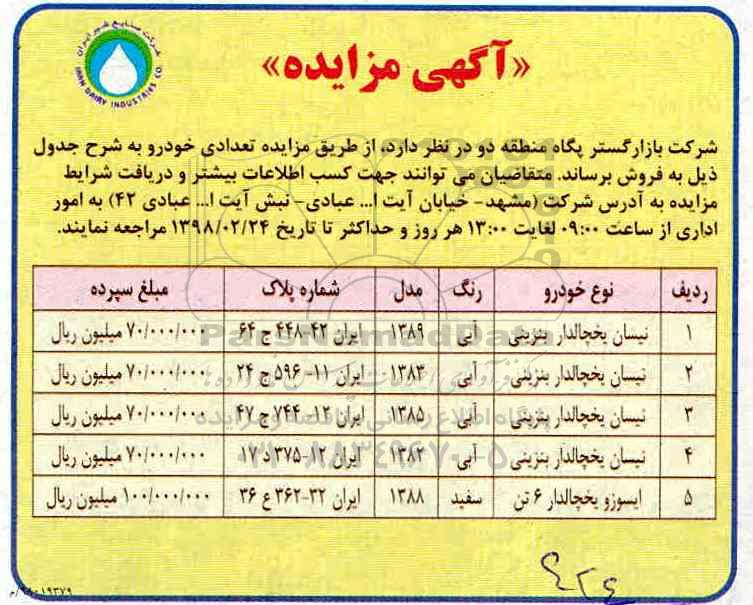 شرکت صنایع شیر ایران
IRAN DAIRY INDUSTRIES CO.
«آگهی مزایده»
شرکت بازارگستر پگاه منطقه دو در نظر دارد، از طریق مزایده تعدادی خودرو به شرح جدول
ذیل به فروش برساند. متقاضیان می توانند جهت کسب اطلاعات بیشتر و دریافت شرایط
مزایده به آدرس شرکت (مشهد- خیابان آیت ا... عبادی- نبش آیت ا... عبادی ۴۲) به امور
اداری از ساعت ۰۹:۰۰ لغایت ۱۳:۰۰ هر روز و حداکثر تا تاریخ ۱۳۹۸/۰۲/۲۴ مراجعه نمایند.
ردیف نوع خودرو رنگ مدل شماره پلاک مبلغ سپرده
۱ نیسان یخچالدار بنزینی آبی ۱۳۸۹ ایران ۴۲-۴۴۸ ج ۶۴ ۷۰/۰۰۰/۰۰۰ میلیون ریال
۲ نیسان یخچالدار بنزینی آبی ۱۳۸۳ ایران ۱۱-۵۹۶ ج ۲۴ ۷۰/۰۰۰/۰۰۰ میلیون ریال
۳ نیسان یخچالدار بنزینی آبی ۱۳۸۵ ایران ۱۲-۷۴۴ ج ۴۷ ۷۰/۰۰۰/۰۰۰ میلیون ریال
۴ نیسان یخچالدار بنزینی آبی ۱۳۸۲ ایران ۱۲-۳۷۵ د ۱۷ ۷۰/۰۰۰/۰۰۰ میلیون ریال
۵ ایسوزو یخچالدار ۶ تن سفید ۱۳۸۸ ایران ۳۲-۳۶۲ ع ۳۶ ۱۰۰/۰۰۰/۰۰۰ میلیون ریال
ParsNamadData
پایگاه اطلاع رسانی مناقصه و مزایده
۰۲۱-۸۸۳۴۹۶۷۰-۵